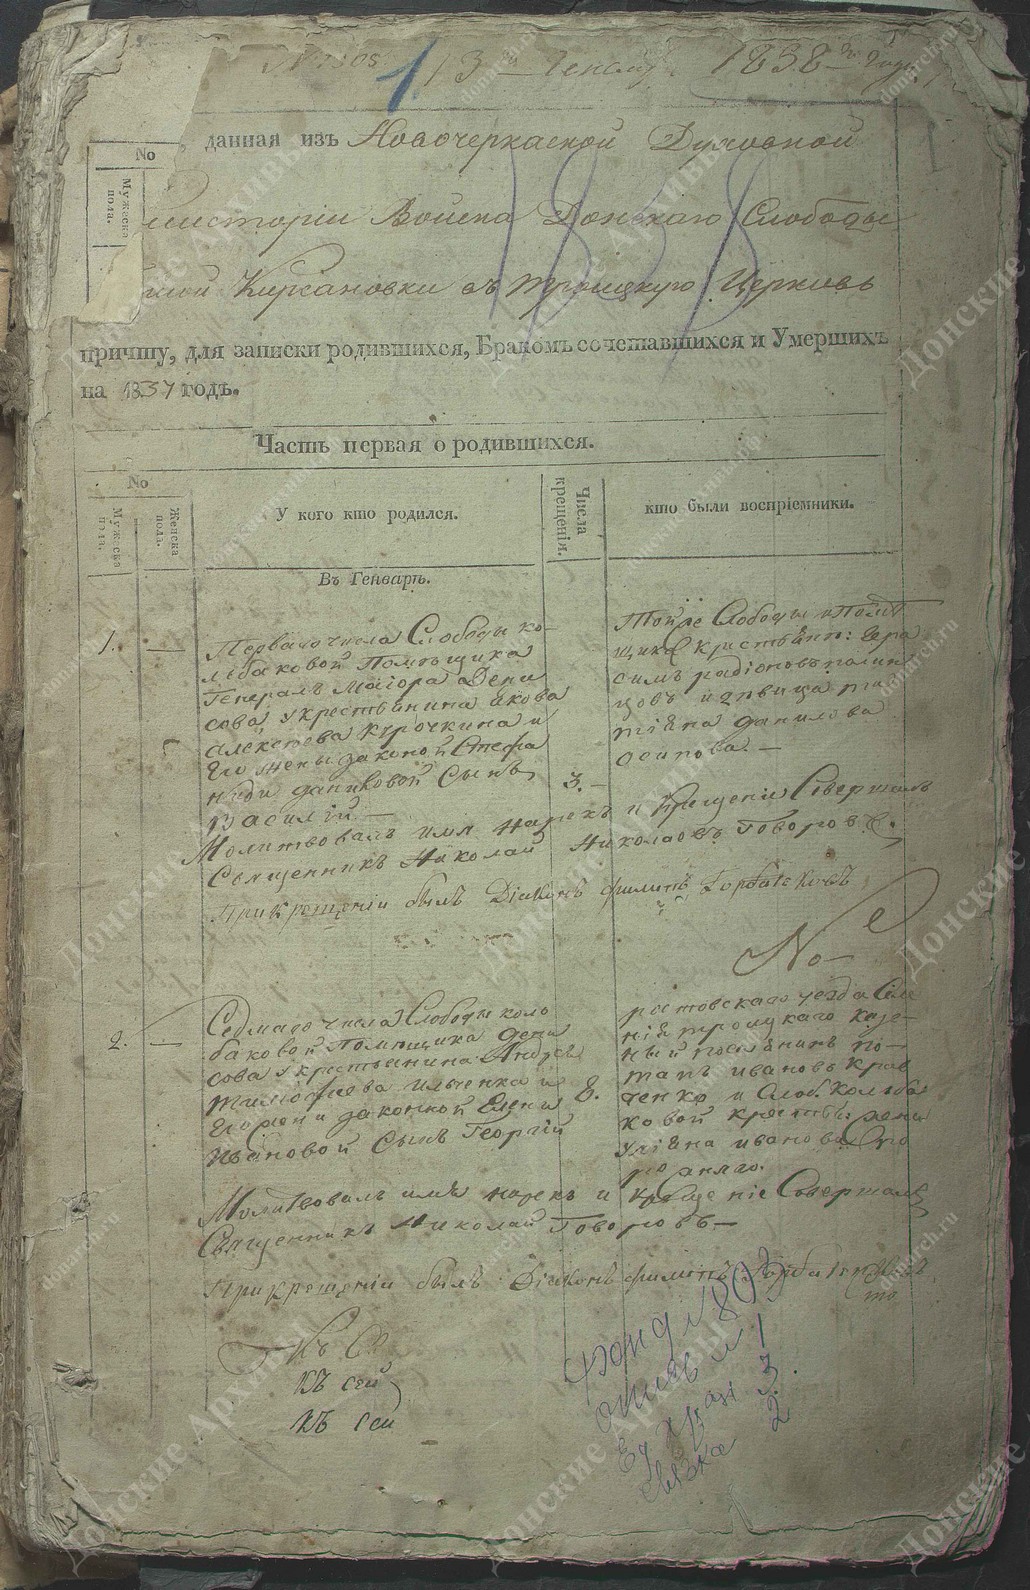 1838 года
данная изъ Новочеркаской Духовной
No
Мужеска пола.
Войска Донскаго Слободы
Кирсановки въ Троицкую Церковь
причту, для записки родившихся, Бракомъ сочетавшихся и Умершихъ
на 1837 годъ.
1838
Часть первая о родившихся.
No
Мужеска пола.
Женска пола.
У кого кто родился.
Числа крещенія.
кто были воспріемники.
Въ Генварѣ.
1.
Перваго числа Слободы Ко-
льбаковой Помѣщика
Генералъ Маіора Дени
сова у крестьянина Якова
Алексѣева Курочкина и
Его жены законой Стефа
ниди Даниловой Сынъ
Василій
3.
Той же Слободы и Помѣ
щика крестьянинъ: Гера
симъ радіоновъ
цовъ и дѣвица
Данилова
осипова.
Молитвовалъ имя нарекъ и Крещеніе Совершалъ
Священникъ Николай Николаевъ Говоровъ.
При крещеніи былъ Діаконъ филипъ Горбатековъ
No
2.
Седмаго числа Слободы Коль
баковой Помѣщика Дени
сова у крестьянина Андрея
Тимофѣева ильченка и
Его жены законной Елены
Ивановой Сынъ Георгій
8.
ростовскаго уезда Селе
нія троицкаго казе-
ный поселянинъ по-
тапъ ивановъ Крав
ченко и Слоб. Кольба
ковой крестья: жена
Уліяна иванова
Молитвовалъ имя нарекъ и крещеніе Совершалъ
Священникъ Николай Говоровъ
При крещеніи былъ Діаконъ филипъ Горбатековъ
Къ С
Къ сей
Къ сей
Фонд № 803
опись № 1
Ед. хран 3.
Связка 2